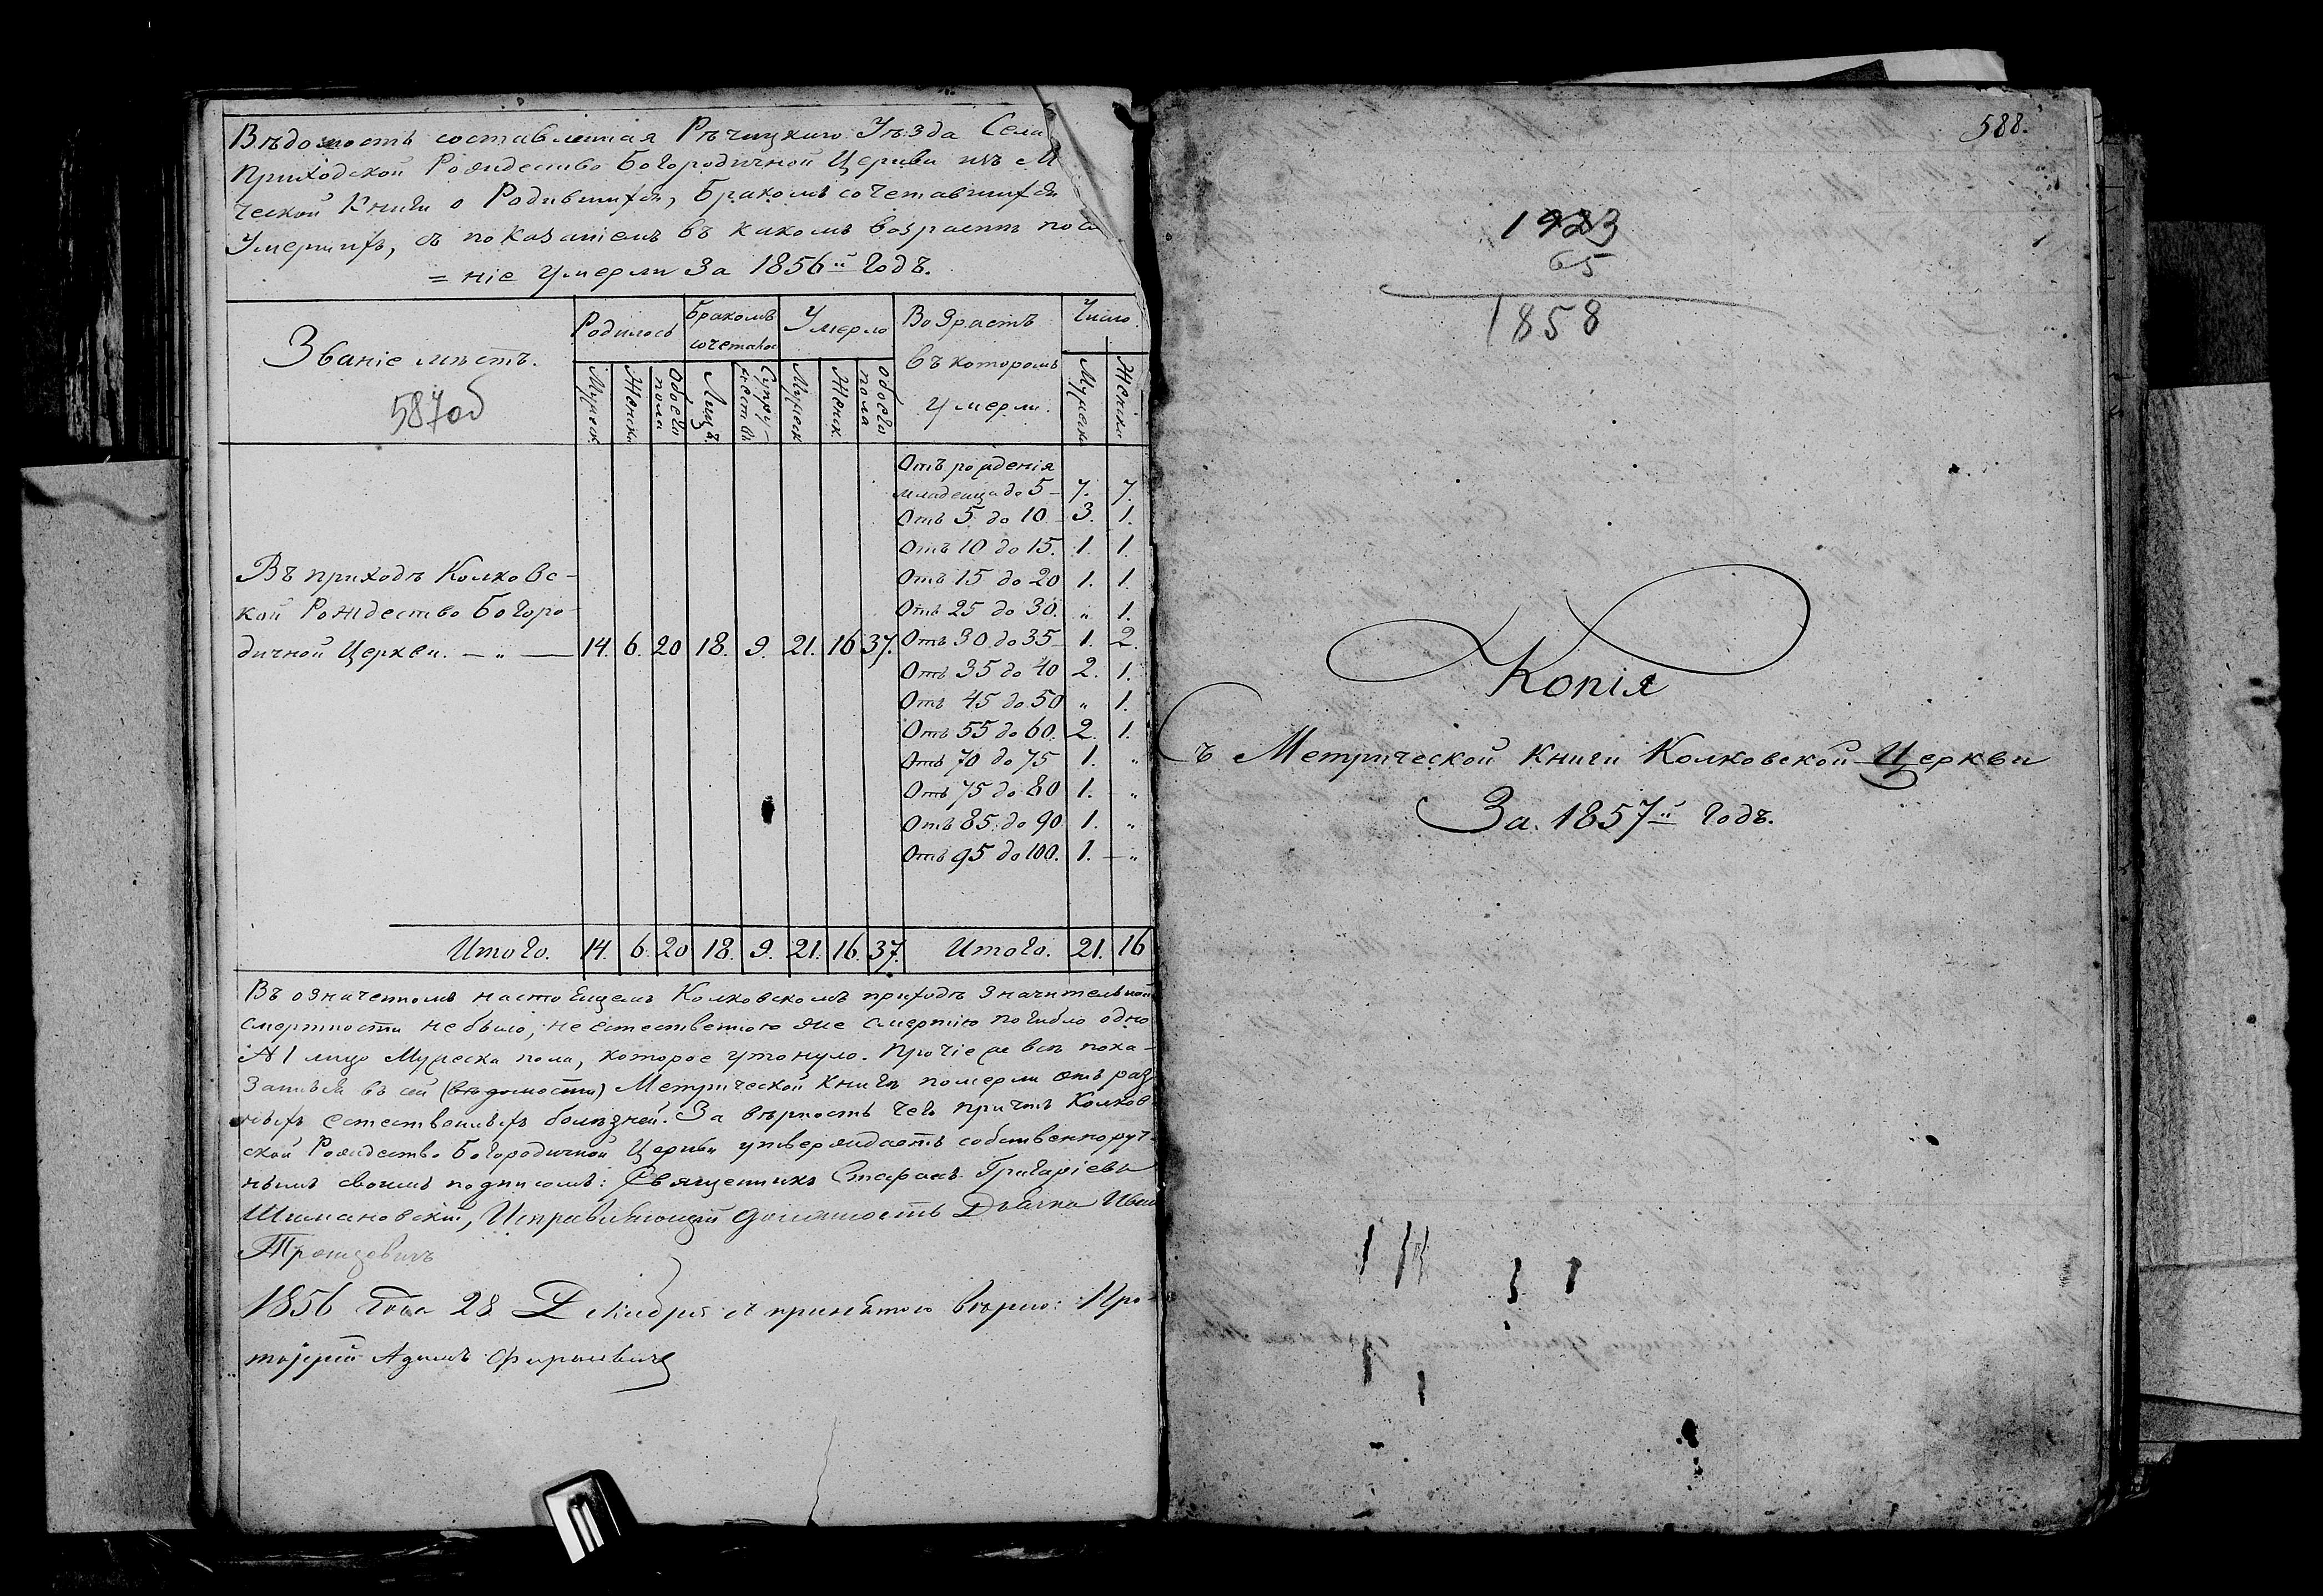 Вѣдомость составленная Рѣчицкаго Уѣзда Села
Приходской Рождество Богородичной Церкви изъ М
ческой Книги о Родившихся, Бракомъ сочетавшихся
Умершихъ, съ показаніемъ въ какомъ возрастѣ посл
=ніе умерли За 1856й Годъ.
Званіе мѣстъ.
587об
Родилось
Бракомъ сочеталос
Умерло
Возрастъ въ которомъ умерли.
Число.
Мужеск. Женска Обоего пола Лицъ. Супружествъ Мужеск Женск. Обоего пола Мужеска Женска
Отъ рожденія
младенца до 5 – 7. 7.
Отъ 5 до 10 – 3. 1.
Отъ 10 до 15. 1. 1.
Отъ 15 до 20 1. 1.
Отъ 25 до 30. „ 1.
Отъ 30 до 35 1. 2.
Отъ 35 до 40 2. 1.
Отъ 45 до 50 „ 1.
Отъ 55 до 60. 2. 1.
Отъ 70 до 75 1. „
Отъ 75 до 80 1. „
Отъ 85 до 90 1. „
Отъ 95 до 100. 1. – „
Въ приходѣ Колковс-
кой Рождество Богоро-
дичной Церкви. — „ — 14. 6. 20 18. 9. 21. 16 37.
Итого. 14. 6. 20 18. 9. 21. 16. 37. Итого. 21. 16
Въ означенномъ настоящемъ Колковскомъ приходѣ значительной
смертности не было, не естественною же смертію погибло одно
№ 1 лицо Мужеска пола, которое утонуло. Прочіе же всѣ пока-
занные въ сей (вѣдомости) Метрической Книгѣ померли отъ раз
ныхъ естественныхъ болѣзней. За вѣрность чего причтъ Колков-
ской Рождество Богородичной Церкви утверждаетъ собственноруч-
нымъ своимъ подписомъ: Священникъ Стефанъ Григоріевъ
Шимановскій, Исправляющій должность Дьячка Иван
1856 Года 28 Декабря съ принятого вѣрно: Про-
тоіерей Адамъ
588.
1923
65
1858
Копія
Съ Метрической Книги Колковской Церкви
За. 1857й Годъ.